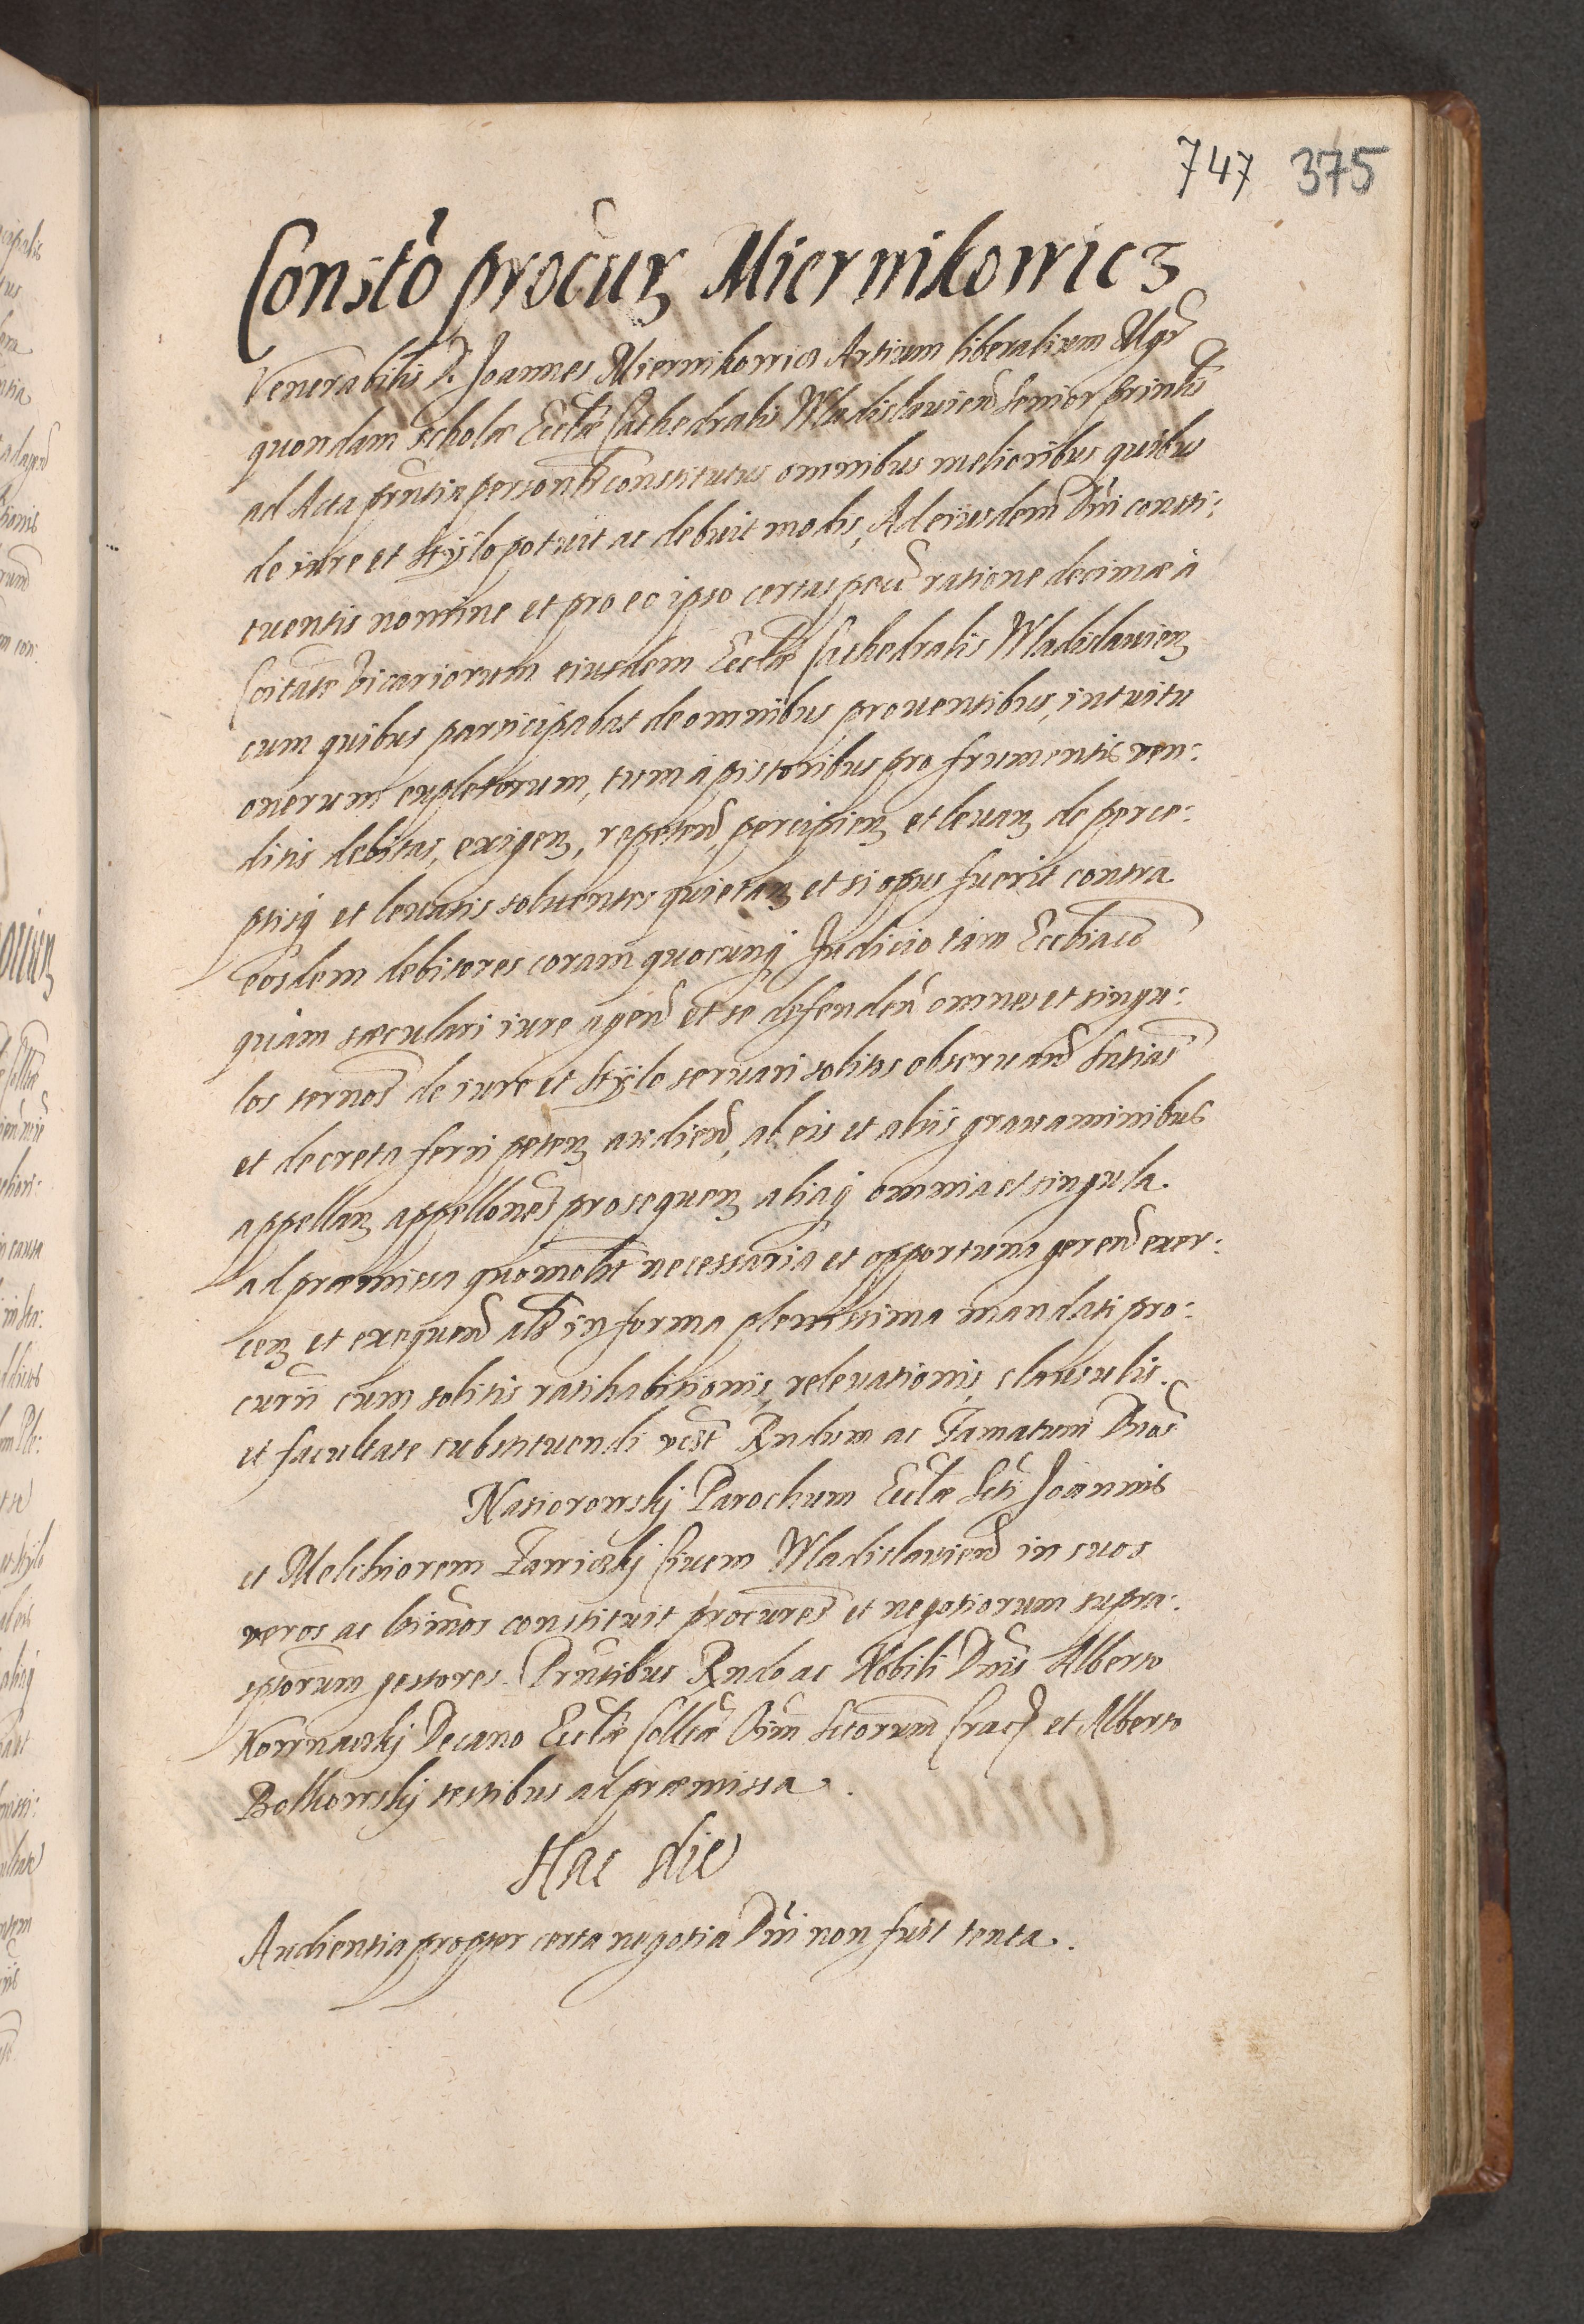 747 375
Constō procurꝫ Miernikowicz
Venerabilis D. Joannes Miernikowicz Artium liberalium Mgr̄
quondam scholæ Eccl̄æ Cathedralis Wladislavieñ Senior
ad Acta pr̄ntia personl̄r constitutus omnibus melioribus quibus
de iure et stÿlo potuit ac debuit modis, Ad eiusdem Dn̄i consti:
tuentis nomine et pro eo ipso certas pecū ratione decimæ à
Cōitate Vicariorum eiusdem Eccl̄æ Cathedralis Wladislavienꝫ
cum quibus participabat de omnibus prouentibus, intuitu
onerum expletorum, tum à pistoribus pro frumentis ven:
ditis debitas, exigenꝫ, repetend̄, percipienꝫ et levanꝫ de perce:
ptisqꝫ et levatis soluentes quietanꝫ et si opus fuerit contra
eosdem debitores coram quocunqꝫ Judicio tam Eccl̄iaco
quàm sæculari iure agend̄ et se defenden̄ omnes et singu:
los termos̄ de iure et stÿlo seruari solitos obseruand̄ Sn̄tias
et decreta ferri petenꝫ audiend̄, ab eis et aliis grauaminibus
appellanꝫ appellōnes prosequenꝫ aliaqꝫ omnia et singula
ad præmissa quomolt̄ necessaria et opportuna gerend̄ exer:
cenꝫ et exequend̄ als̄ in forma plenissima mandati pro:
curn̄ cum solitis ratihabitionis, relevationis, clausulis.
et facultate substituendi vcst̄ Rn̄dum ac Famatum Dnōs
Nasiorowskj Parochum Eccl̄æ Scti Joannis
et Melchiorem Ciuem Wladislavieñ in suos
veros ac ltimos constituit procures̄ et negotiorum supra:
sptorum gestores. Prn̄tibus Rn̄do ac Nobili Dn̄is Alberto
Decano Eccl̄æ Collt̄æ Oīm Sctorum Crac̄ et Alberto
Bolkowskj testibus ad præmissa.
Hac die
Audientia propter certa negotia Dn̄i non fuit tenta.